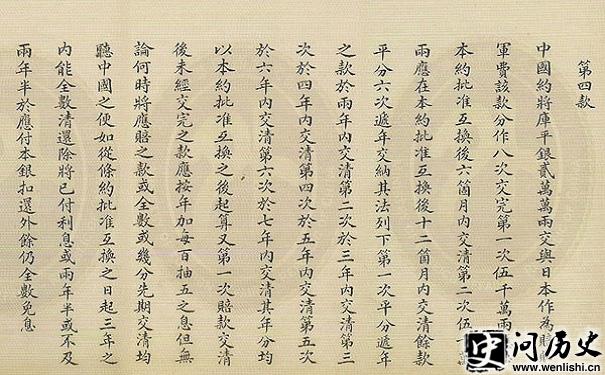 第四款
中國約將庫平銀貳萬萬兩交與日本作為賠
軍費該款分作八次交完第一次伍千萬兩
本約批准互換後六箇月內交清第二次伍
兩應在本約批准互換後十二箇月內交清餘款
平分六次遞年交納其法列下第一次平分遞年
之款於兩年內交清第二次於三年內交清第三
次於四年內交清第四次於五年內交清第五次
於六年內交清第六次於七年內交清其年分均
以本約批准互換之後起算又第一次賠款交清
後未經交完之款應按年加每百抽五之息但無
論何時將應賠之款或全數或幾分先期交清均
聽中國之便如從條約批准互換之日起三年之
內能全數清還除將已付利息或兩年半或不及
兩年半於應付本銀扣還外餘仍全數免息
史问历史
www.wenlishi.cn